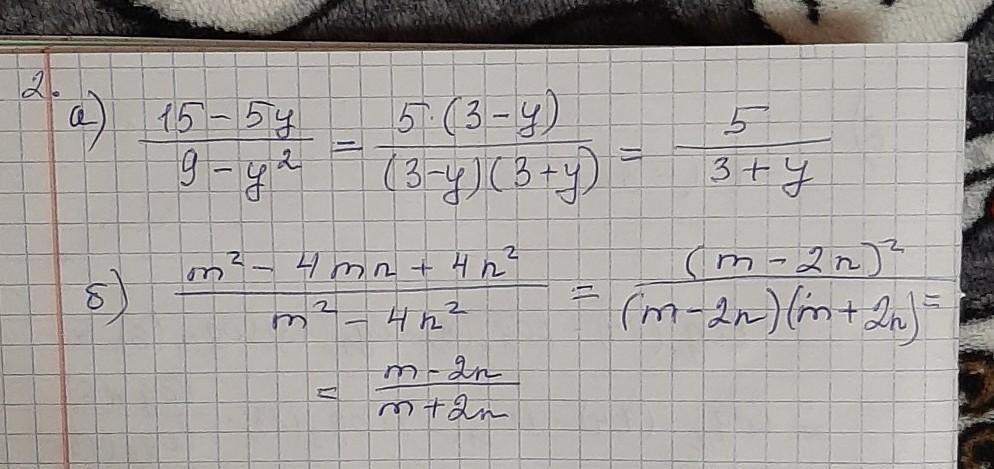 2.
а) (15 - 5y)/(9 - y²) = (5·(3 - y))/((3-y)(3+y)) = 5/(3 + y)
б) (m² - 4mn + 4n²)/(m² - 4n²) = (m - 2n)²/((m - 2n)(m + 2n)) =
= (m - 2n)/(m + 2n)